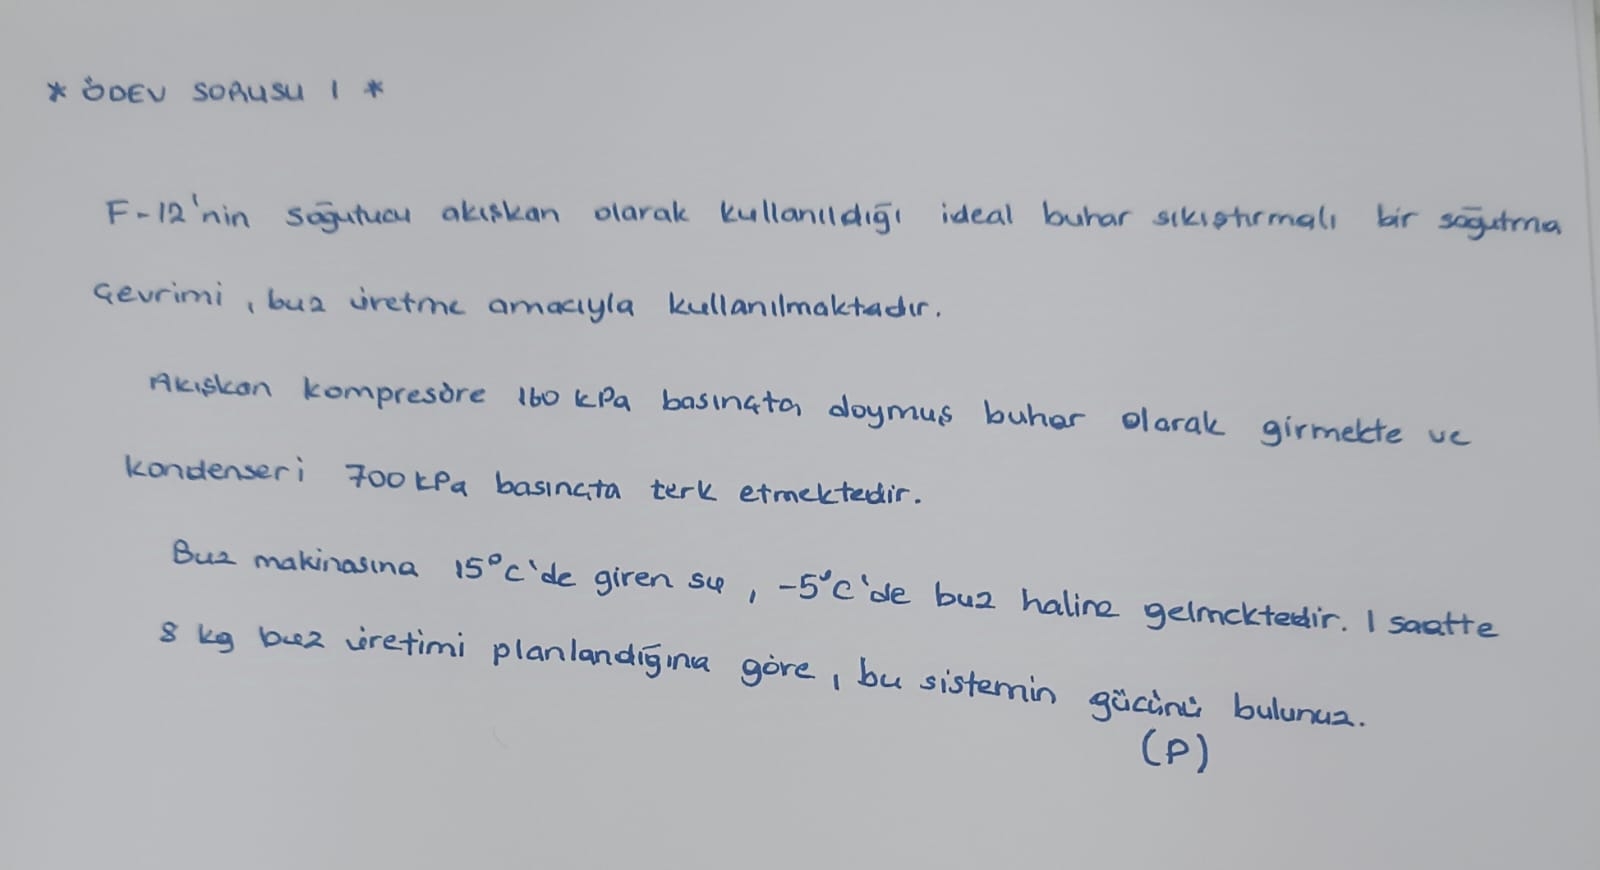 * ÖDEV SORUSU 1 *
F-12'nin soğutucu akışkan olarak kullanıldığı ideal buhar sıkıştırmalı bir soğutma
çevrimi, buz üretme amacıyla kullanılmaktadır.
Akışkan kompresöre 160 kPa basınçta doymuş buhar olarak girmekte ve
kondenseri 700 kPa basınçta terk etmektedir.
Buz makinasına 15°C'de giren su, -5°C'de buz haline gelmektedir. 1 saatte
8 kg buz üretimi planlandığına göre, bu sistemin gücünü bulunuz.
(P)